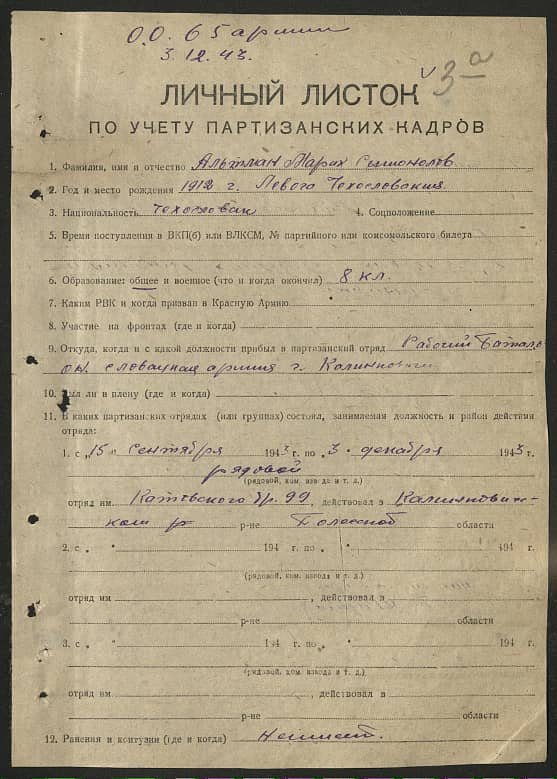 О.О. 65 армии
3.12.43.
3-а
ЛИЧНЫЙ ЛИСТОК
ПО УЧЕТУ ПАРТИЗАНСКИХ КАДРОВ
1. Фамилия, имя и отчество Альтман Марах
2. Год и место рождения 1912 г. Левога Чехословакия
3. Национальность чехословак 4. Соцположение
5. Время поступления в ВКП(б) или ВЛКСМ, № партийного или комсомольского билета
6. Образование: общее и военное (что и когда окончил) 8 кл.
7. Каким РВК и когда призван в Красную Армию
8. Участие на фронтах (где и когда)
9. Откуда, когда и с какой должности прибыл в партизанский отряд Рабочий батальо
он. словацкая армия г. Калинковичи
10. Был ли в плену (где и когда)
11. В каких партизанских отрядах (или группах) состоял, занимаемая должность и район действия
отряда:
1. с „15" сентября 1943 г. по „3" декабря 1943 г.
рядовой
(рядовой, ком. взвода и т. д.)
отряд им. Котовского бр. 99, действовал в Калинкович-
ком р р-не Полесской области
2. с „ " 194 г. по „ " 194 г.
(рядовой, ком. взвода и т. д.)
отряд им , действовал в
р-не области
3. с „ " 194 г. по „ " 194 г.
(рядовой, ком. взвода и т. д.)
отряд им , действовал в
р-не области
12. Ранения и контузии (где и когда) Не имеет.